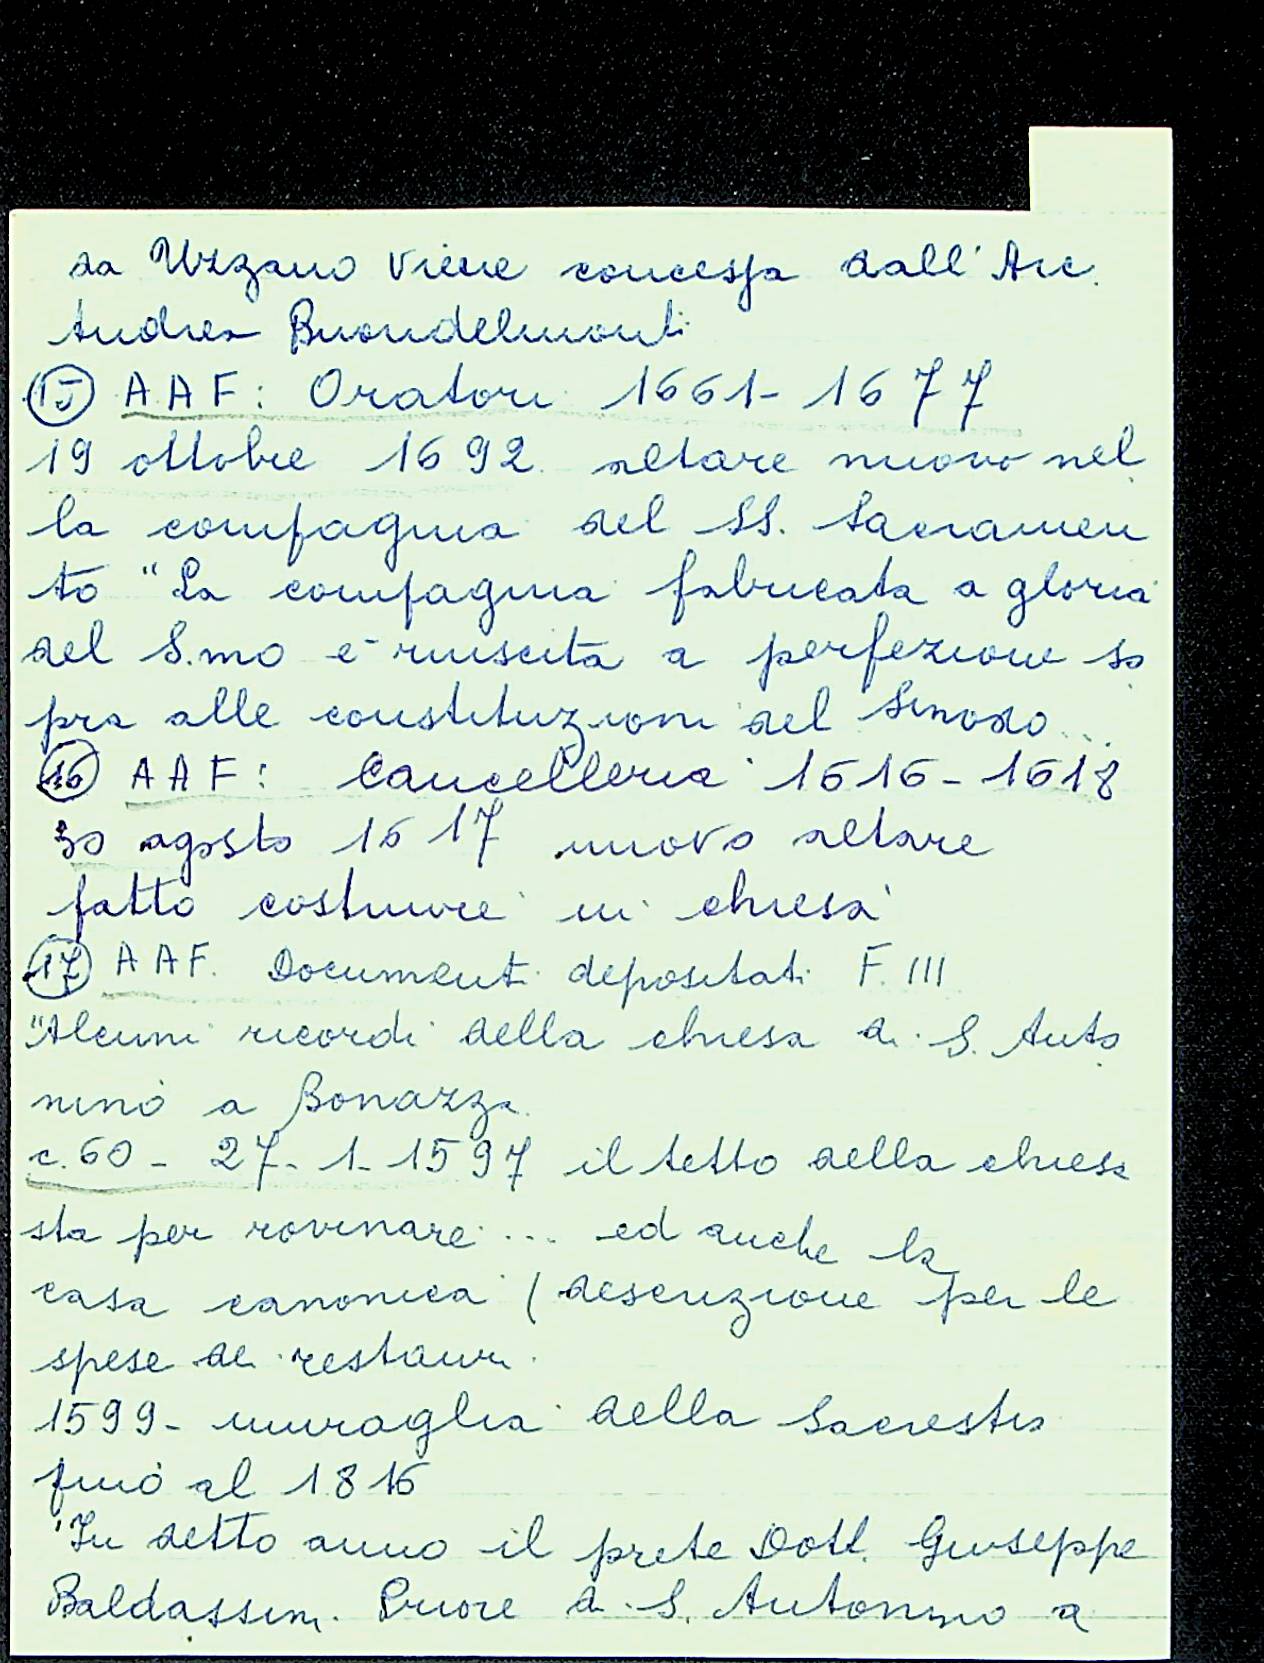 da Uzzano viene concessa dall'Arc.
Andrea Buondelmonti
15 AAF: Oratori 1661-1677
19 ottobre 1692 altare nuovo nel
la compagnia del SS. Sacramen
to "La compagnia fabricata a gloria
del S.mo è riuscita a perfezione so
pra alle constituzioni del Sinodo...
16 AAF: Cancelleria 1616-1618
30 agosto 1617 nuovo altare
fatto costruire in chiesa
17 AAF. Documenti depositati F. III
"Alcuni ricordi della chiesa di S. Anto
nino a Bonazza
c.60 - 27-1-1597 il tetto della chiesa
sta per rovinare ... ed anche la
casa canonica (descrizione per le
spese di restauri.
1599- muraglia della Sacrestia
fino al 1816
"In detto anno il prete Dott. Giuseppe
Baldassini. Priore di S. Antonino a